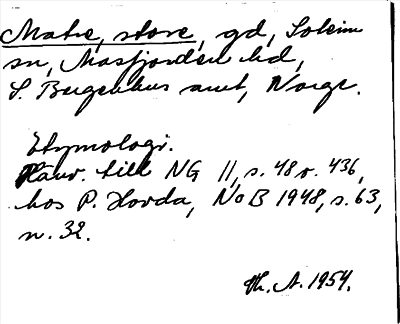 Matre, store, gd, Soleim
sn, Masfjorden hd,
S. Bergenhus amt, Norge.
Etymologi.
Hänv. till NG 11, s. 48 o. 436,
hos P. Hovda, NoB 1948, s. 63,
n. 32.
Th. A. 1954.